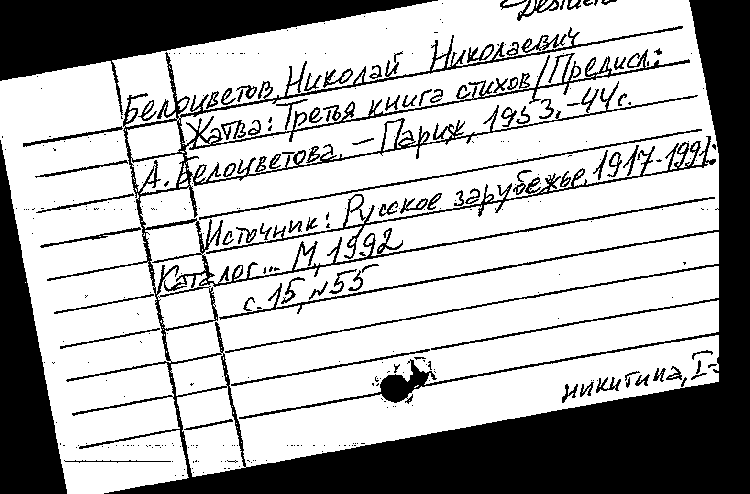 Белоцветов, Николай Николаевич
Жатва: Третья книга стихов / Предисл.:
А. Белоцветова. – Париж, 1953. – 44 с.
Источник: Русское зарубежье. 1917-1991:
Каталог... М, 1992
с. 15, №55
никитина, I-